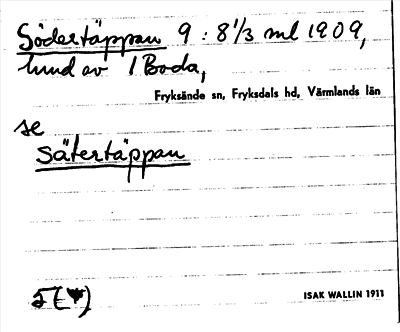 Södertäppan 9 : 8 1/3 ml 1909,
lund av 1 Boda,
Fryksände sn, Fryksdals hd, Värmlands län
se
Sätertäppan
ISAK WALLIN 1911